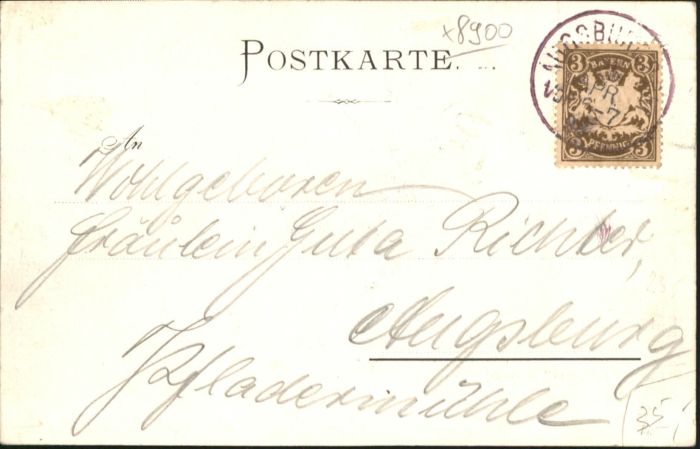 x8900
POSTKARTE.
AUGSBURG
APR
3 BAYERN 3
3 PFENNIG 3
An
Wohlgeboren
Fräulein Guta Richter,
Augsburg
Pfladermühle
35